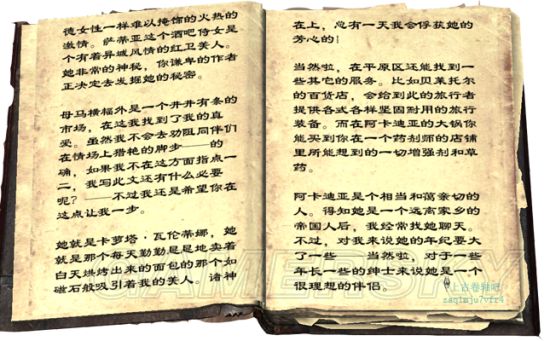 德女性一样难以掩饰的火热的
激情。萨蒂亚这个酒吧侍女是
个有着异域风情的红卫美人。
她非常的神秘，你谦卑的作者
正决定去发掘她的秘密。
母马横幅外是一个井井有条的
市场，在这我找到了我的真
爱。虽然我不会去劝阻同伴们
在情场上猎艳的脚步——的
确，如果我不在这方面指点一
二，我写此文还有什么必要
呢？——不过我还是希望你在
这点让我一步。
她就是卡萝塔·瓦伦蒂娜，她
就是那个每天勤勤恳恳地卖着
白天烘烤出来的面包的那个如
磁石般吸引着我的美人。诸神
在上，总有一天我会俘获她的
芳心的！
当然啦，在平原区还能找到一
些其它的服务。比如贝莱托尔
的百货店，会给到此的旅行者
提供各式各样坚固耐用的旅行
装备。而在阿卡迪亚的大锅你
能买到你在一个药剂师的店铺
里所能想到的一切增强剂和草
药。
阿卡迪亚是个相当和蔼亲切的
人。得知她是一个远离家乡的
帝国人后，我经常找她聊天。
不过，对我来说她的年纪要大
了一些——当然啦，对于一些
年长一些的绅士来说她是一个
很理想的伴侣
GAMERSKY
上古卷轴吧
zaqimju7vfr4